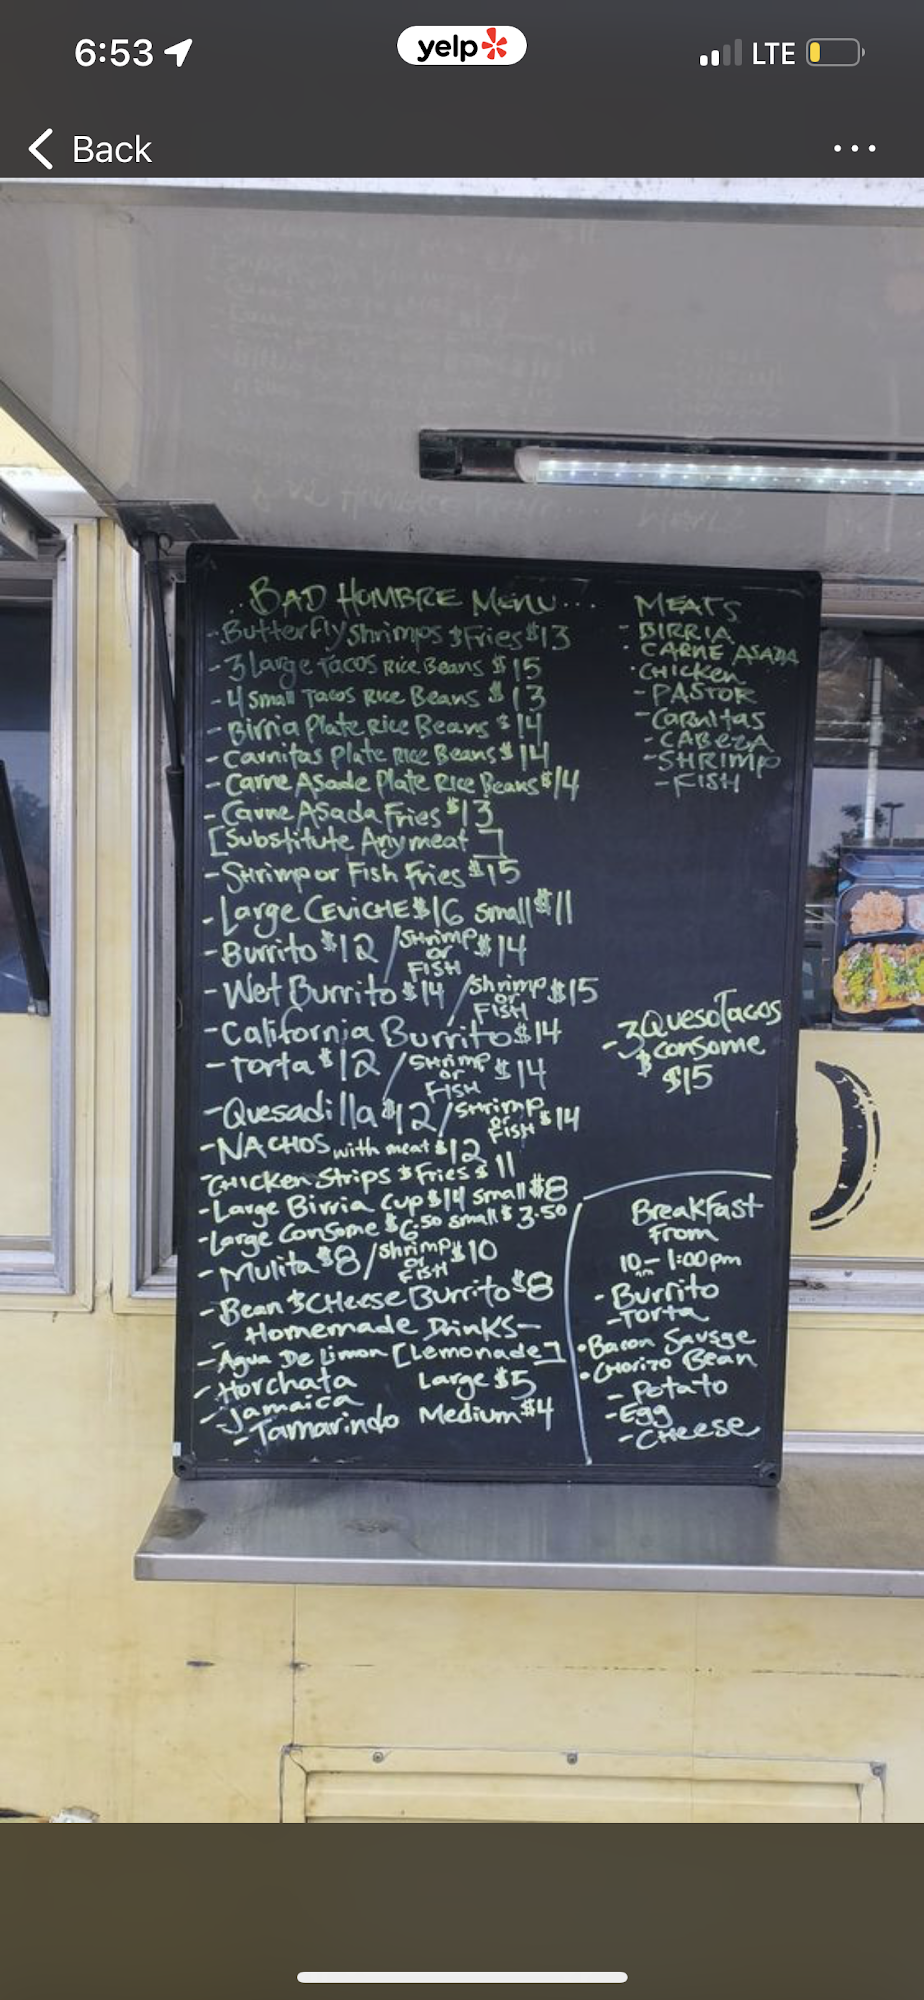 6:53
yelp
LTE
Back
BAD HOMBRE MENU...
-Butterfly shrimps $ Fries $13
-3 Large Tacos Rice Beans $15
-4 Small Tacos Rice Beans $13
-Birria Plate Rice Beans $14
-Carnitas Plate Rice Beans $14
-Carne Asade Plate Rice Beans $14
-Carne Asada Fries $13
[Substitute Any meat]
-Shrimp or Fish Fries $15
-Large CEVICHE $16 small $11
-Burrito $12 / SHrimp or FISH $14
-Wet Burrito $14 / shrimp or FISH $15
-California Burrito $14
-Torta $12 / SHrimp or FISH $14
-Quesadilla $12 / SHrimp or FISH $14
-NACHOS with meat $12
-CHicken Strips $ Fries $11
-Large Birria Cup $14 small $8
-Large Consome $6.50 small $3.50
-Mulita $8 / shrimp or FISH $10
-Bean $ CHeese Burrito $8
- Homemade Drinks-
-Agua De Limon [Lemonade]
-Horchata Large $5
-Jamaica
-Tamarindo Medium $4
MEATS
- BIRRIA
· CARNE ASADA
·CHICKEN
-PASTOR
-Carnitas
-CABEZA
-SHRIMP
-FISH
-3 Queso Tacos
$ Consome
$15
Breakfast
From
10am-1:00pm
-Burrito
-Torta
•Bacon Savsge
•CHorizo Bean
-Potato
-Egg
-CHeese